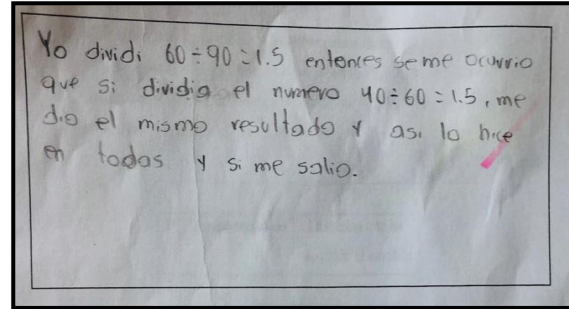 Yo dividi 60÷90=1.5 entonces se me ocurrio
que si dividia el numero 40÷60=1.5, me
dio el mismo resultado y asi lo hice
en todas y si me salio.